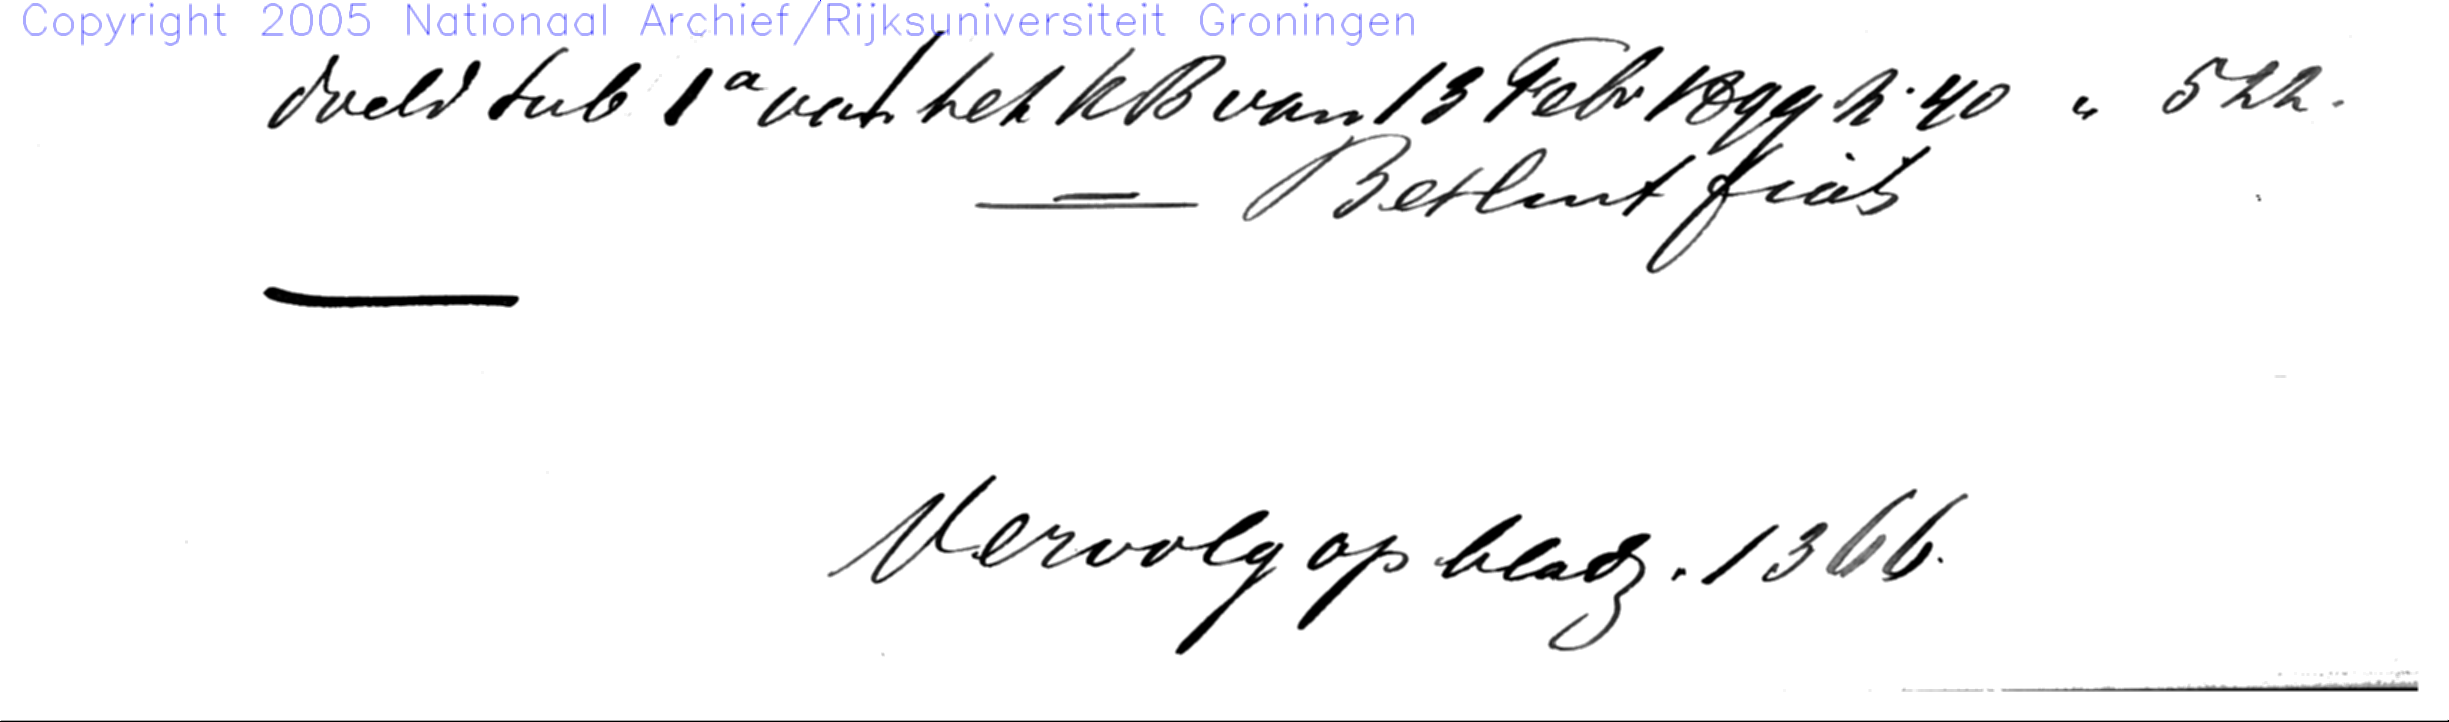 Copyright 2005 Nationaal Archief/Rijksuniversiteit Groningen
doeld sub 1a van het KB van 13 Febr 1899 n. 40 " 522.
Besluit fiat
Vervolg op bladz. 1366.